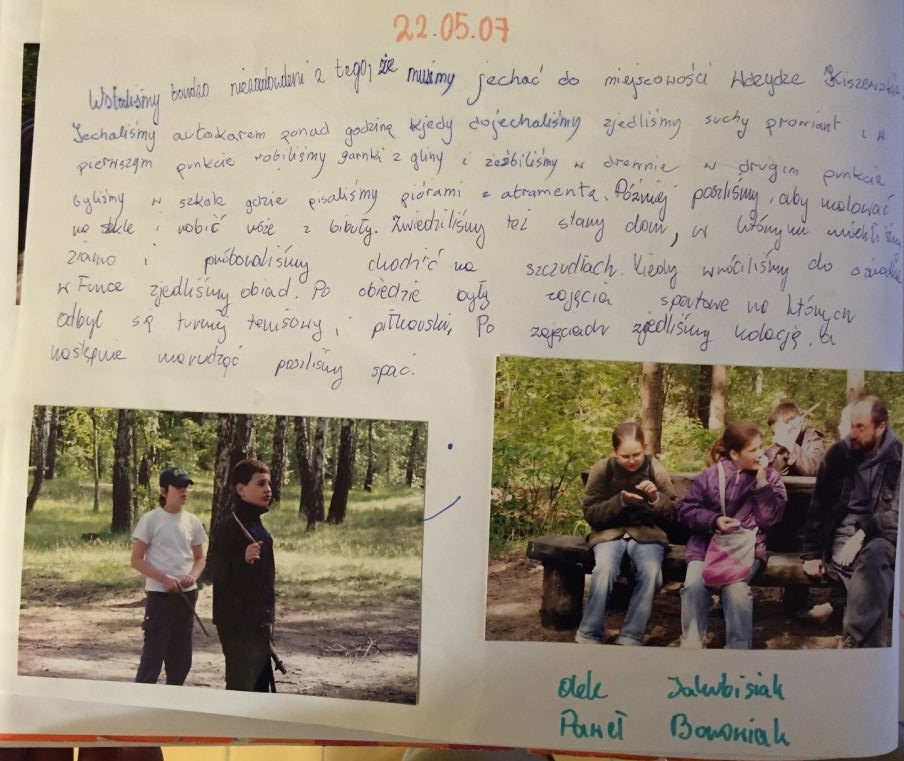 22.05.07
Wstaliśmy bardzo niezadowoleni z tego, że musimy jechać do miejscowości Wdzydze Kiszewskie.
Jechaliśmy autokarem ponad godzinę kiedy dojechaliśmy zjedliśmy suchy prowiant i w
pierwszym punkcie robiliśmy garnki z gliny i w drewnie w drugim punkcie
byliśmy w szkole gdzie pisaliśmy piórami z atramentu. Później poszliśmy, aby malować
na szkle i robić róże z bibuły. Zwiedziliśmy też stary dom, w którym
ziarno i próbowaliśmy chodzić na szczudłach. Kiedy wróciliśmy do ośrodka
w Funce zjedliśmy obiad. Po obiedzie były zajęcia sportowe na których
odbył się turniej tenisowy, i piłkarski, Po zajęciach zjedliśmy kolację, a
następnie marudząc poszliśmy spać.
Olek Jakubisiak
Paweł